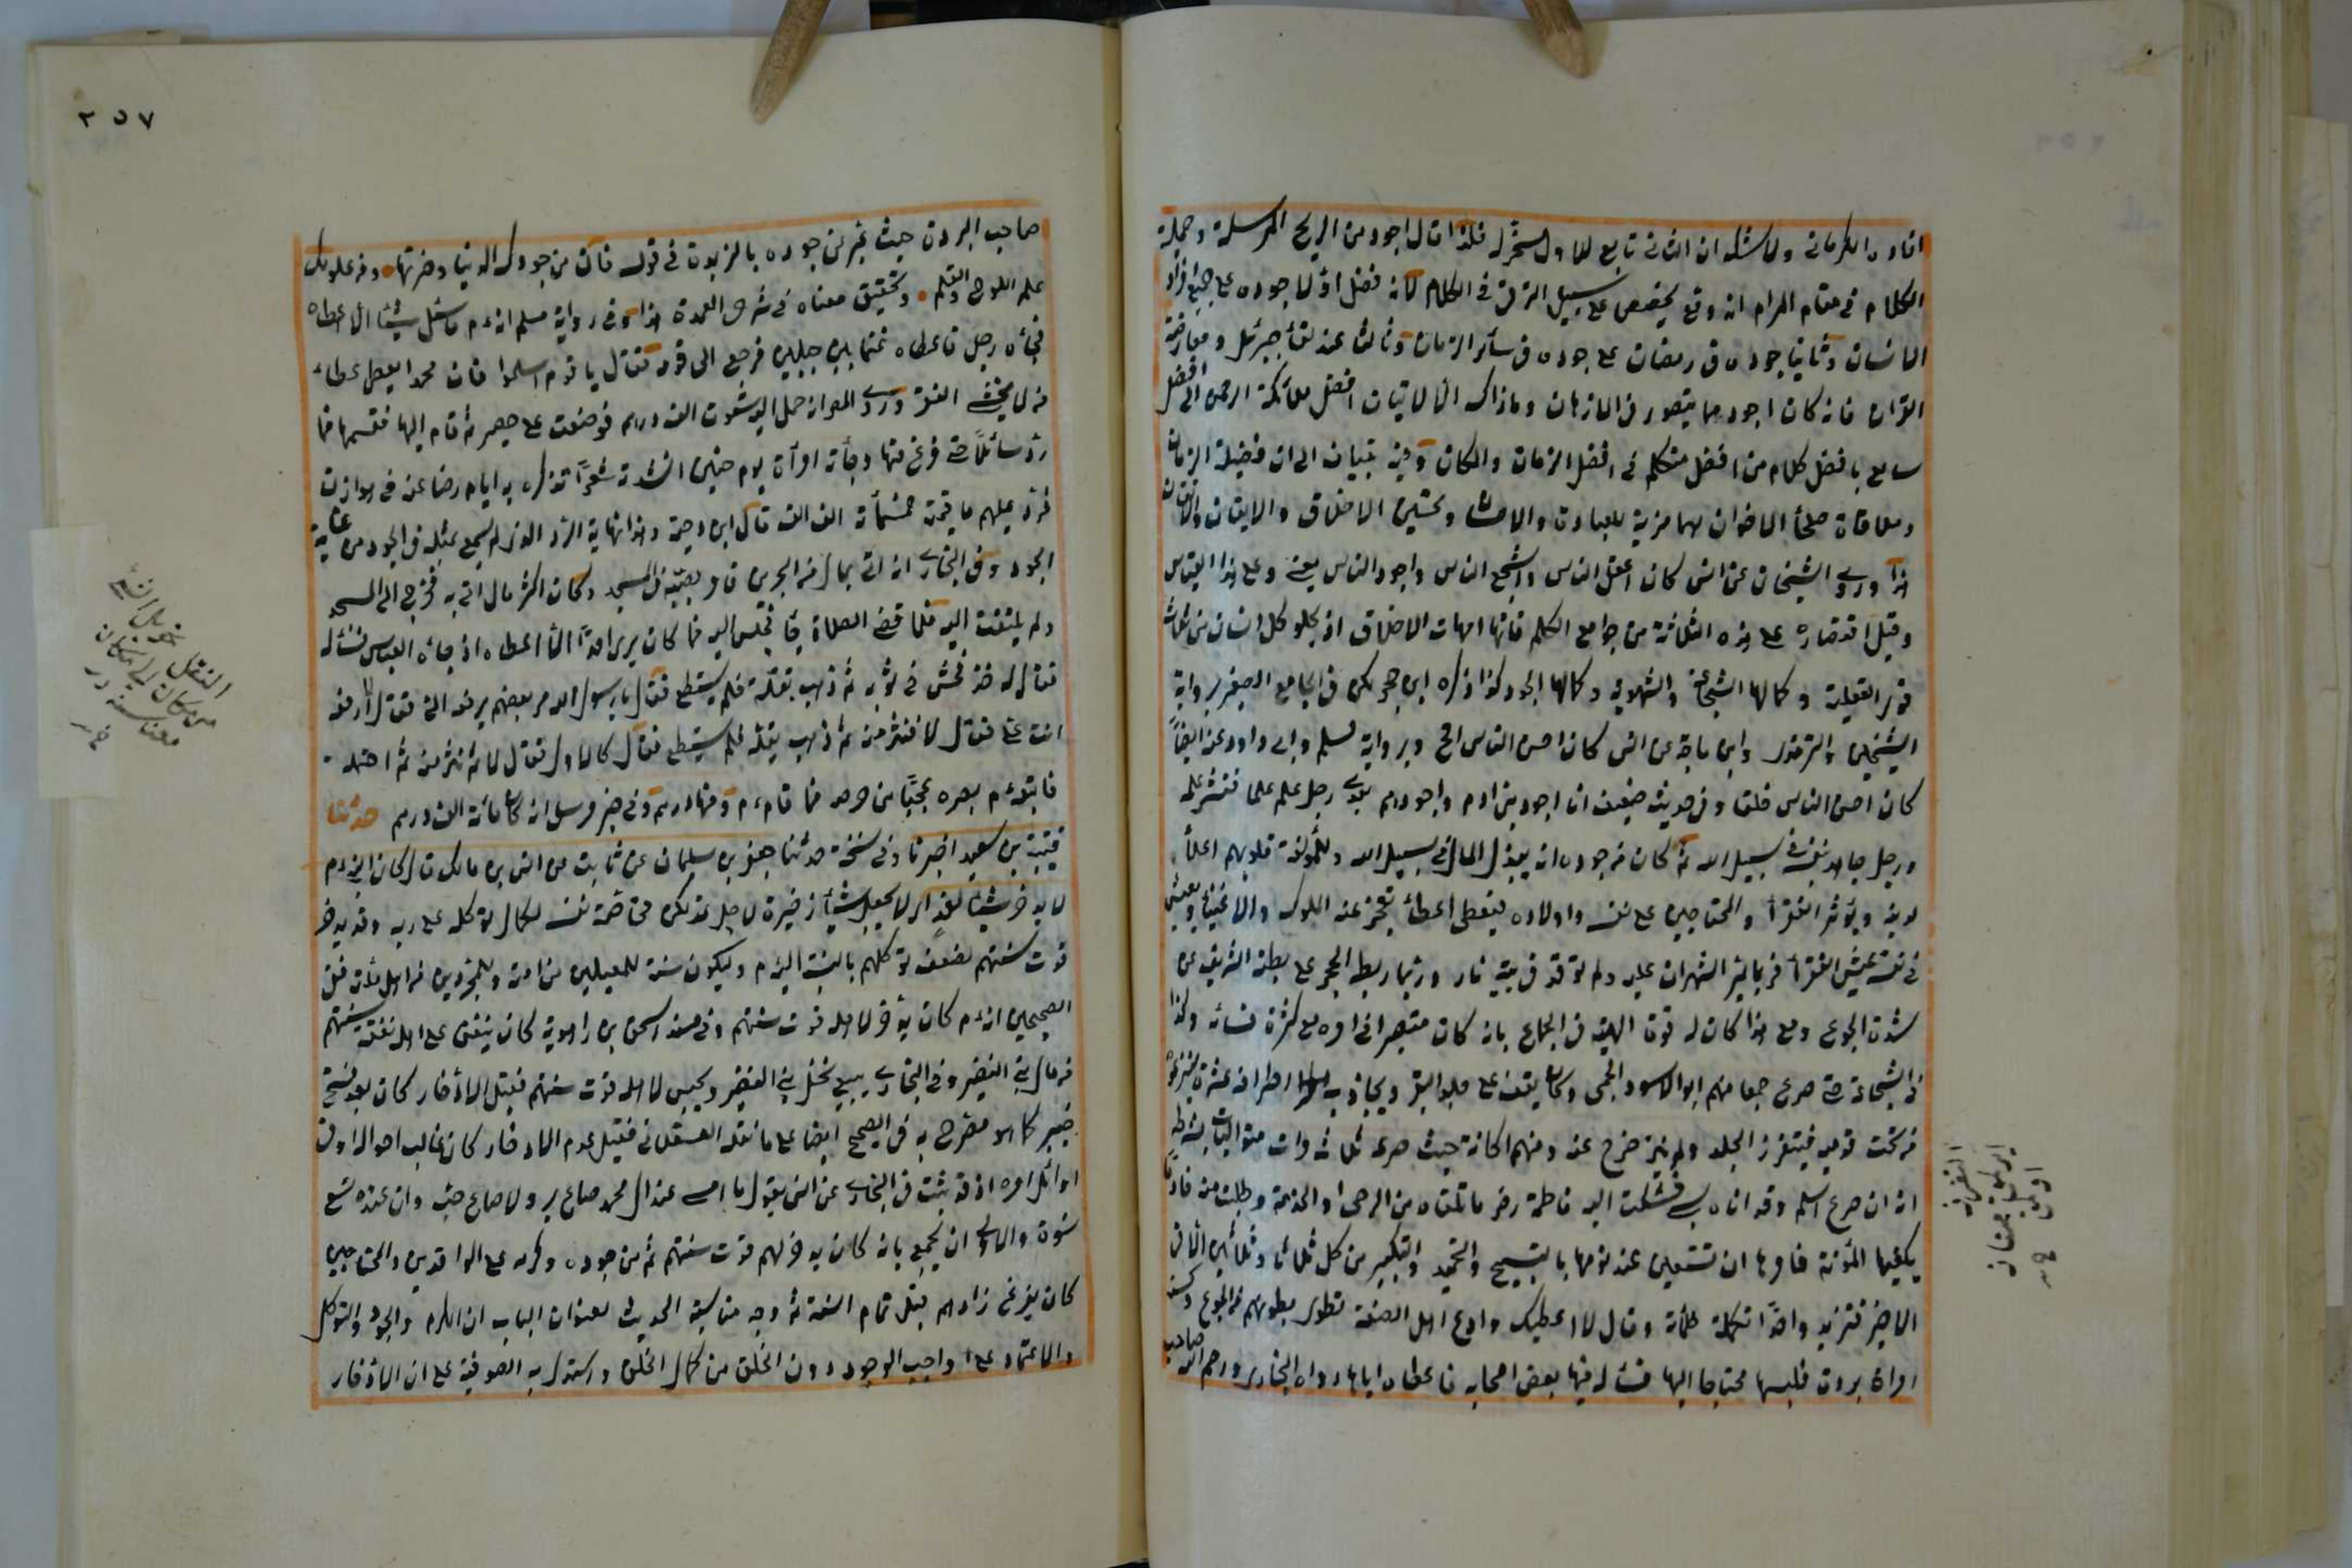 افاده الكرماني ولا شك ان الثاني تابع للاول مسخر له فلذا قال اجود من الريح المرسلة وجملة
الكلام في مقام المرام انه وقع تخصيص على سبيل الترقي في الكلام لانه فضل اولا جوده على جميع افراد
الانسان وثانيا جوده في رمضان على جوده في سائر الزمان وثالثا عند لقاء جبرئيل ومعارضة
القران فانه كان اجود مما يتصور في الاذهان وما ذاك الا لاتيان افضل ملائكة الرحمن الى افضل
سامع بافضل كلام من افضل متكلم في افضل الزمان والمكان وفيه تبيان الى ان فضيلة الزمان
وملاقاة صلحاء الاخوان لهما مزية للعبادة والاحسان وتحسين الاخلاق والايقان والاتقان
هذا وروى الشيخان عن انس كان اعقل الناس واشجع الناس واجود الناس يعني وعلى هذا القياس
وقيل اقتصاره على هذه الثلاثة من جوامع الكلم فانها امهات الاخلاق اذ لا يخلو كل انسان من ثلاث
قوى العقلية وكمالها الشجاعة والشهوية وكمالها الجود كذا ذكره ابن حجر لكن في الجامع الصغير برواية
الشيخين والترمذي وابن ماجة عن انس كان احسن الناس الخ وبرواية لمسلم وابي داود عنه ايضا
كان احسن الناس خلقا وفي حديث ضعيف انا اجود بني ادم واجودهم بعدي رجل علم علما فنشر علمه
ورجل جاهد بنفسه في سبيل الله ثم كان من جوده انه يبذل المال في سبيل الله وللمؤلفة قلوبهم اعلاء
لدينه ويؤثر الفقراء والمحتاجين على نفسه واولاده فيعطي اعطاء يعجز عنه الملوك والاغنياء ويعيش
في نفسه عيش الفقراء فربما يمر الشهران عليه ولم توقد في بيته نار وربما ربط الحجر على بطنه الشريف من
شدة الجوع ومع هذا كان له قوة الهية في الجماع بانه كان متبصرا في امره مع كثرة نسائه وكذا
في الشجاعة حتى صرع جمعا منهم ابو الاسود الجمحي وكان يقف على جلد البقر ويجاذب اطرافه عشرة لينزعوه
من تحت قدميه فيتفزر الجلد ولم يتزحزح عنه ومنهم ركانة حيث صرعه ثلاث مرات متواليات بشرطه
انه ان صرع اسلم وقد اتاه سبي فشكت اليه فاطمة رضي ما تلقاه من الرحى او الخدمة وطلبت منه خادما
يكفيها المؤنة فامرها ان تستعين عند نومها بالتسبيح والتحميد والتكبير من كل ثلاثا وثلاثين الا في
الاخير فتزيد واحدا تكملة للمائة وقال لا اعطيك وادع اهل الصفة تطوى بطونهم من الجوع وكسته
امراة بردة فلبسها محتاجا اليها فسأله فيها بعض اصحابه فاعطاه اياها رواه البخاري ورحم الله صاحب
٢٥٧
صاحب البردة حيث عبر عن جوده بالزبدة في قوله فان من جودك الدنيا وضرتها ومن علومك
علم اللوح والقلم وتحقيق معناه في شرح العمدة هذا وفي رواية مسلم انه عم ما سئل شيئا الا اعطاه
فجاءه رجل فاعطاه غنما بين جبلين فرجع الى قومه فقال يا قوم اسلموا فان محمدا يعطي عطاء
من لا يخشى الفقر وروى الترمذي انه حمل اليه تسعون الف درهم فوضعت على حصير ثم قام اليها فقسمها فما
رد سائلا حتى فرغ منها وجاءته امراة يوم حنين انشدت شعرا تذكره به ايام رضاعه في هوازن
فرد عليهم ما قيمته خمسمائة الف الف قال ابن دحية وهذا نهاية الجود الذي لم يسمع بمثله في الجود من غاية
الجود وفي البخاري انه اتي بمال من البحرين فامر بصبه في المسجد وكان اكثر مال اتي به فخرج الى المسجد
ولم يلتفت اليه فلما قضى الصلاة جاء فجلس اليه فما كان يرى احدا الا اعطاه اذ جاءه العباس فسأله
فقال له خذ فحثى في ثوبه ثم ذهب يقله فلم يستطع فقال يا رسول الله مر بعضهم يرفعه الي فقال لا ارفعه
انت علي فقال لا فنثر منه ثم ذهب يقله فلم يستطع فقال كالاول فقال لا ثم نثر منه ثم احتمله
فاتبعه عم بصره عجبا من حرصه فما قام عم ومنها درهم وفي خبر مرسل انه كان مائة الف درهم حدثنا
قتيبة بن سعيد اخبرنا وفي نسخة حدثنا جعفر بن سليمان عن ثابت عن انس بن مالك قال كان النبي عم
لا يدخر شيئا لغد اي لا يجعل شيئا ذخيرة لاجل غد لكن مختاصة نفسه لكمال توكله على ربه وقد يدخر
قوت سنتهم لضعف توكلهم بالنسبة اليه عم وليكون سنة للمعيلين من امته وللمجردين من اهل ملته ففي
الصحيحين انه عم كان يدخر لاهله قوت سنتهم وفي مسند اسحق بن راهوية كان ينفق على اهله نفقة سنتهم
من مال بني النضير وفي البخاري يبيع نخل بني النضير ويحبس لاهله قوت سنتهم فقيل الادخار كان بعد فتح
خيبر كما هو مصرح به في الصحيح ايضا على ما نقله العسقلاني فقيل عدم الادخار كان غالب احواله او في
اوائل امره اذ قد ثبت في البخاري عن انس يقول ما امسى عند ال محمد صاع بر ولا صاع حب وان عنده تسع
نسوة والاولى ان يجمع بانه كان يدخر لهم قوت سنتهم ثم من جوده وكرمه على الوافدين والمحتاجين
كان يفرغ زادهم قبل تمام السنة ثم وجه مناسبة الحديث لعنوان الباب ان الكرم والجود والتوكل
والاعتماد على واجب الوجود دون الخلق من كمال الخلق واستدل به الصوفية على ان الادخار